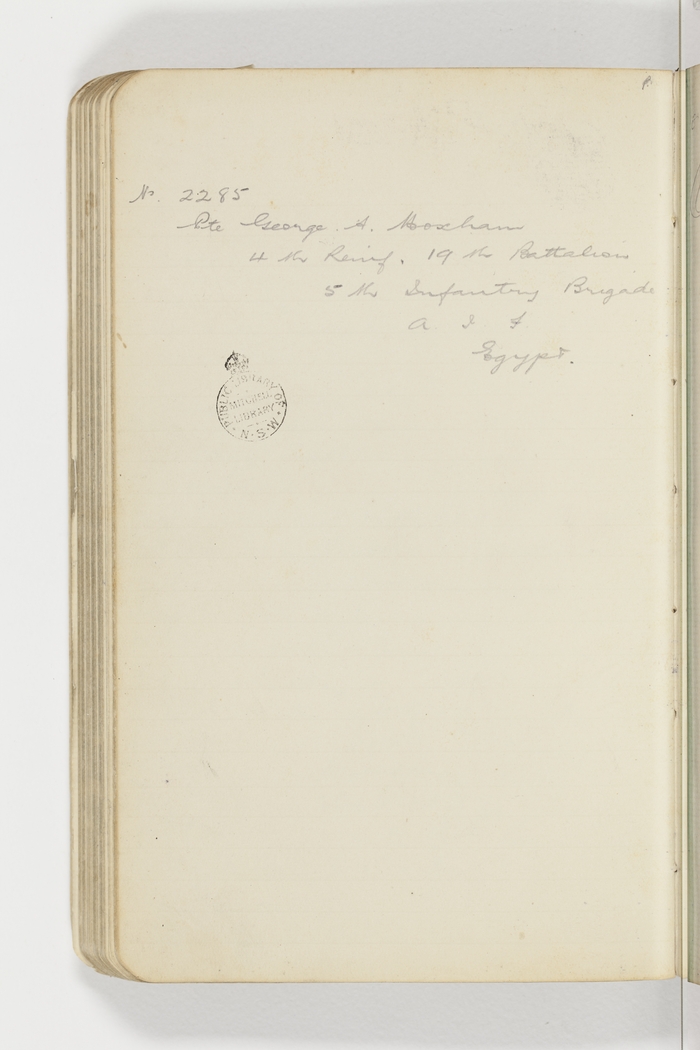 No. 2285
Pte George. A. Moxham
4 th Reinf. 19 th Battalion
5 th Infantry Brigade
A I F
Egypt.
PUBLIC LIBRARY OF N.S.W.
MITCHELL
LIBRARY